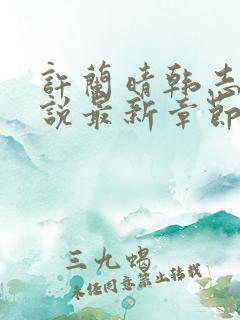 許蘭晴韩志
说最新章節
三九蝎
未经同意禁止转载